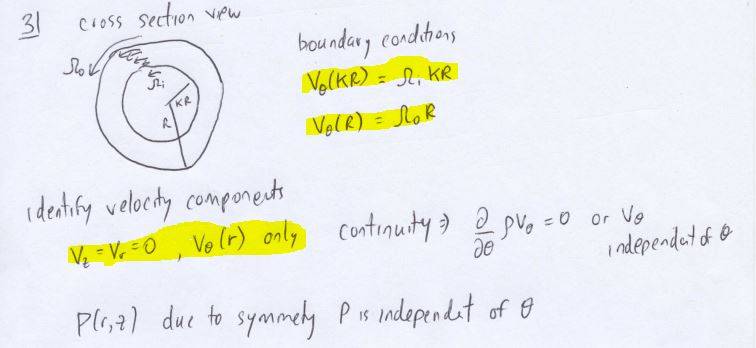 3) cross section view
Ω₀
Ωᵢ
KR
R
boundary conditions
V_θ(KR) = Ωᵢ KR
V_θ(R) = Ω₀R
identify velocity components
V_z = V_r = 0 , V_θ(r) only
continuity ⇒ ∂/∂θ ρV_θ = 0 or V_θ
independent of θ
P(r,z) due to symmety P is independet of θ